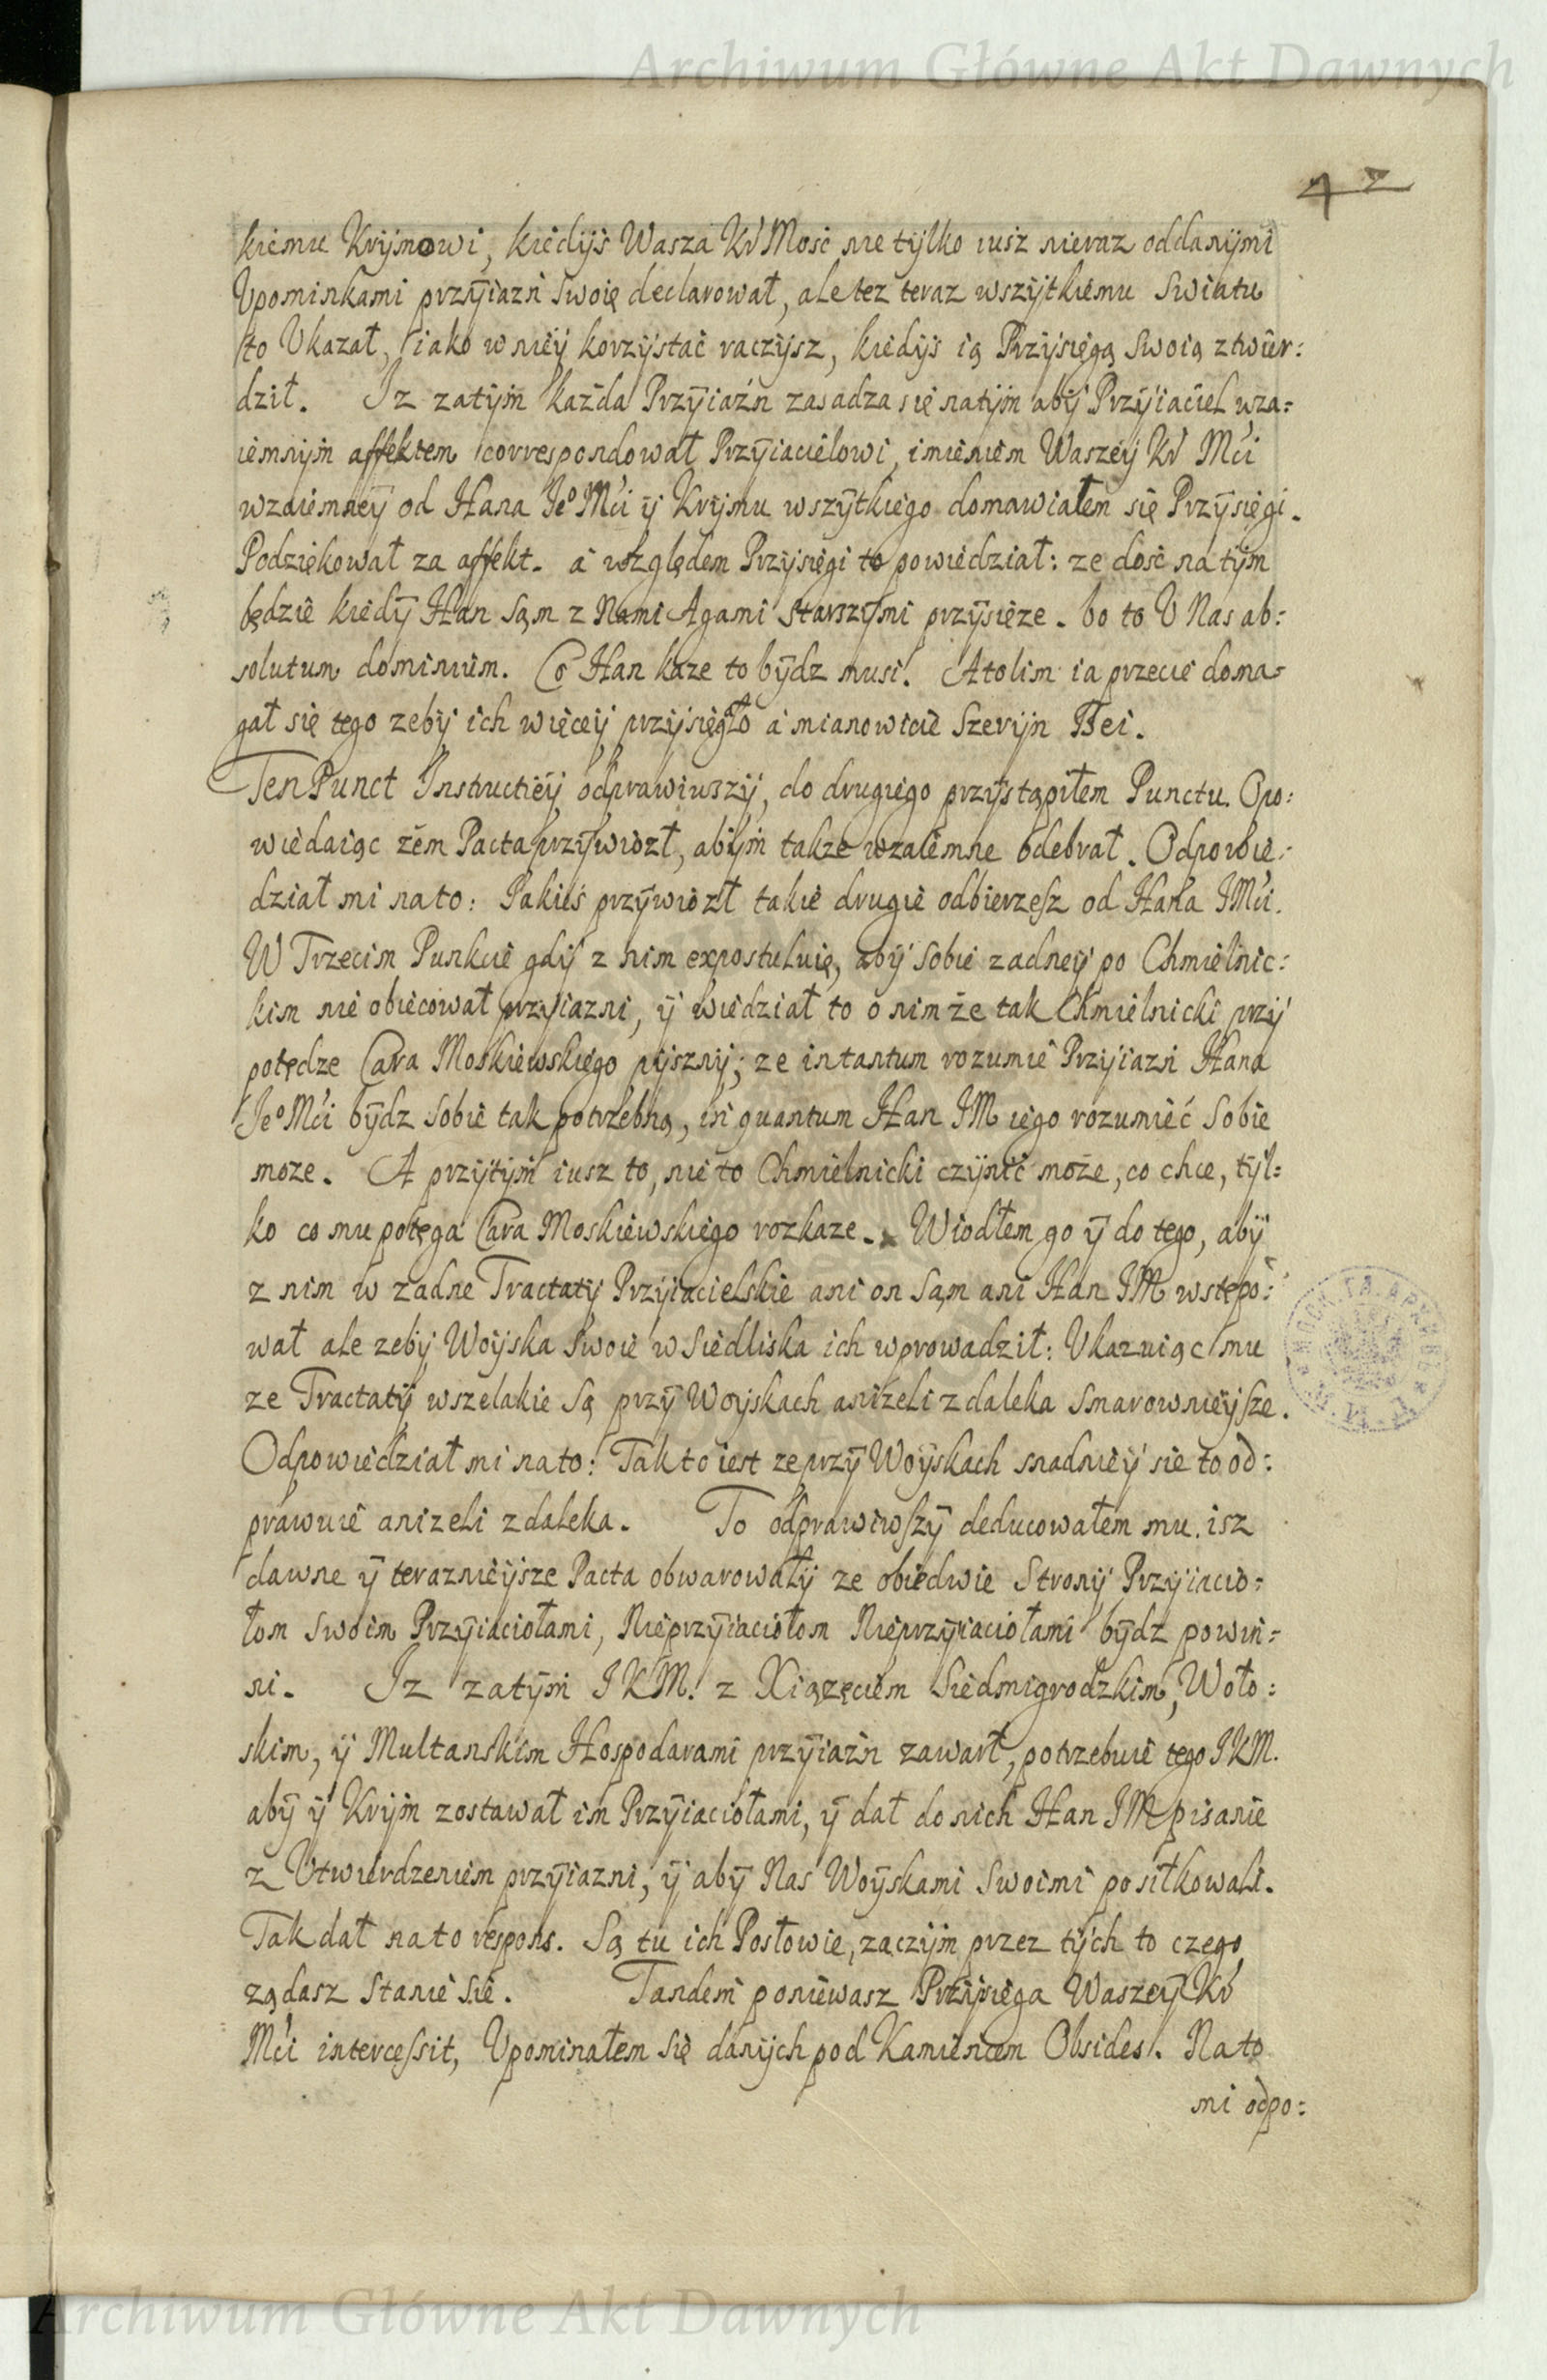 Archiwum Główne Akt Dawnych
42
kiemu Krÿmowi, kiedÿs Wasza Kr Mosć nie tÿlko iusz nieraz oddanÿmi
Upominkami przÿiazń Swoię declarował, ale tez teraz wszÿtkiemu Swiatu
to Ukazał, iako w nieÿ korzÿstać raczÿsz, kiedÿs ią Przÿsięgą Swoią ztwier:
dził. Iz zatÿm każda Przÿiaźn zasadza się natÿm abÿ Przÿiaciel wza:
iemnÿm affektem correspondował Przÿiacielowi, imieniem Waszeÿ Kr Mći
wzaiemneÿ od Hana Je⁰ Mći ÿ Krÿmu wszÿtkiego domawiałem się Przÿsięgi.
Podziękował za affekt. a względem Przÿsięgi to powiedział: ze dosć na tÿm
będzie kiedÿ Han sąm z Nami Agami Starszÿmi przÿsięze. bo to U Nas ab:
solutum dominium. Co Han kaze to bÿdz musi. Atolim ia przecie doma-
gał się tego zebÿ ich więceÿ przÿsięgło a mianowicie Szerÿn Bei.
Ten Punct Instructiéÿ odprawiuszÿ, do drugiego przÿstąpiłem Punctu. Opo:
wiedaiąc żem Pacta przÿwiozł, abÿm takze wzaiemne odebrał. Odpowie:
dział mi na to: Jakieś przÿwiozł takie drugie odbierzesz od Hana IMći.
W Trzecim Punkcie gdÿ z nim expostuluię, abÿ sobie zadneÿ po Chmielnic:
kim nie obiecował przÿiazni, ÿ wiedział to o nim że tak Chmielnicki przÿ
potędze Cara Moskiewskiego pÿsznÿ; ze in tantum rozumie Przÿiazń Hana
Je⁰ Mći bÿdz sobie tak potrzebną, in quantum Han IM iego rozumieć sobie
moze. A przÿtÿm iusz to, nie to Chmielnicki czÿnić może, co chce, tÿl:
ko co mu potęga Cara Moskiewskiego rozkaze. Wiodłem go ÿ do tego, abÿ
z nim w zadne Tractatÿ Przÿiacielskie ani on sąm ani Han IM wstępo:
wał ale zebÿ Woÿska Swoie w Siedliska ich wprowadził: Ukazuiąc mu
ze Tractatÿ wszelakie są przÿ Woÿskach anizeli zdaleka smarownieÿsze.
Odpowiedział mi na to: Tak to iest ze przÿ Woÿskach snadnieÿ sie to od:
prawuie anizeli zdaleka. To odprawiwszÿ deducowałem mu. isz
dawne ÿ teraznieÿsze Pacta obwarowałÿ ze obiedwie Stronÿ Przÿiacio:
łom swoim Przÿiaciołami, Nieprzÿiaciołom Nieprzÿiaciołami bÿdz powin:
ni. Iz zatÿm I K M. z Xiązęciem Siedmigrodzkim, Woło:
skim, ÿ Multanskim Hospodarami przÿiaźn zawarł, potrzebuie tego I K M.
abÿ ÿ Krÿm zostawał im Przÿiaciołami, ÿ dał do nich Han IM pisanie
z Utwierdzeniem przÿiazni, ÿ abÿ Nas Woÿskami Swoimi posiłkowali.
Tak dał na to respons. Są tu ich Posłowie, zaczÿm przez tÿch to czego
ządasz stanie sie. Tandem poniewasz Przÿsięga Waszeÿ Kr
Mći intercessit, Upominałem się danÿch pod Kamieńcem Obsides. Na to
mi odpo:
Archiwum Główne Akt Dawnych